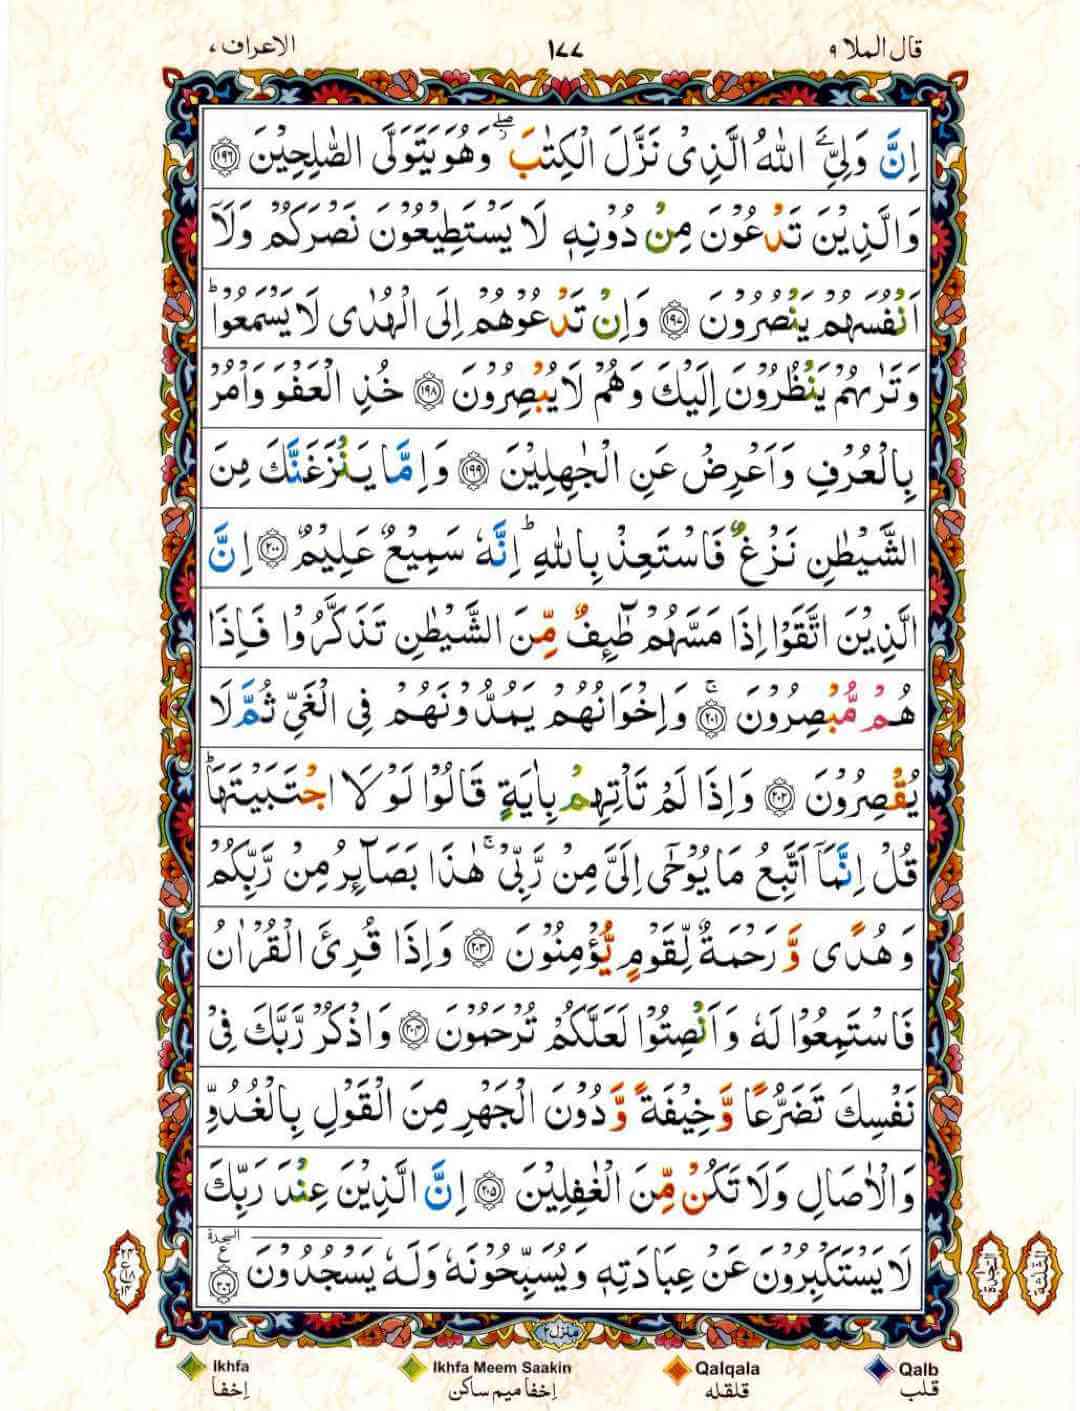 قال الملا ٩ ١٧٧ الاعراف ٧
اِنَّ وَلِيِّۦَ اللّٰهُ الَّذِىْ نَزَّلَ الْكِتٰبَ ۖ وَهُوَ يَتَوَلَّى الصّٰلِحِيْنَ ﴿١٩٦﴾
وَالَّذِيْنَ تَدْعُوْنَ مِنْ دُوْنِهٖ لَا يَسْتَطِيْعُوْنَ نَصْرَكُمْ وَلَاۤ
اَنْفُسَهُمْ يَنْصُرُوْنَ ﴿١٩٧﴾ وَاِنْ تَدْعُوْهُمْ اِلَى الْهُدٰى لَا يَسْمَعُوْا ؕ
وَتَرٰىهُمْ يَنْظُرُوْنَ اِلَيْكَ وَهُمْ لَا يُبْصِرُوْنَ ﴿١٩٨﴾ خُذِ الْعَفْوَ وَاْمُرْ
بِالْعُرْفِ وَاَعْرِضْ عَنِ الْجٰهِلِيْنَ ﴿١٩٩﴾ وَاِمَّا يَنْزَغَنَّكَ مِنَ
الشَّيْطٰنِ نَزْغٌ فَاسْتَعِذْ بِاللّٰهِ ؕ اِنَّهٗ سَمِيْعٌ عَلِيْمٌ ﴿٢٠٠﴾ اِنَّ
الَّذِيْنَ اتَّقَوْا اِذَا مَسَّهُمْ طٰٓئِفٌ مِّنَ الشَّيْطٰنِ تَذَكَّرُوْا فَاِذَا
هُمْ مُّبْصِرُوْنَ ۚ ﴿٢٠١﴾ وَاِخْوَانُهُمْ يَمُدُّوْنَهُمْ فِى الْغَىِّ ثُمَّ لَا
يُقْصِرُوْنَ ﴿٢٠٢﴾ وَاِذَا لَمْ تَاْتِهِمْ بِاٰيَةٍ قَالُوْا لَوْلَا اجْتَبَيْتَهَا ؕ
قُلْ اِنَّمَاۤ اَتَّبِعُ مَا يُوْحٰٓى اِلَىَّ مِنْ رَّبِّىْ ۚ هٰذَا بَصَآئِرُ مِنْ رَّبِّكُمْ
وَهُدًى وَّرَحْمَةٌ لِّقَوْمٍ يُّؤْمِنُوْنَ ﴿٢٠٣﴾ وَاِذَا قُرِئَ الْقُرْاٰنُ
فَاسْتَمِعُوْا لَهٗ وَاَنْصِتُوْا لَعَلَّكُمْ تُرْحَمُوْنَ ﴿٢٠٤﴾ وَاذْكُرْ رَّبَّكَ فِىْ
نَفْسِكَ تَضَرُّعًا وَّخِيْفَةً وَّدُوْنَ الْجَهْرِ مِنَ الْقَوْلِ بِالْغُدُوِّ
وَالْاٰصَالِ وَلَا تَكُنْ مِّنَ الْغٰفِلِيْنَ ﴿٢٠٥﴾ اِنَّ الَّذِيْنَ عِنْدَ رَبِّكَ
لَا يَسْتَكْبِرُوْنَ عَنْ عِبَادَتِهٖ وَيُسَبِّحُوْنَهٗ وَلَهٗ يَسْجُدُوْنَ ﴿٢٠٦﴾ السجدة ع
منزل ٢
Ikhfa Ikhfa Meem Saakin Qalqala Qalb
اِخفا اِخفا ميم ساكن قلقله قلب